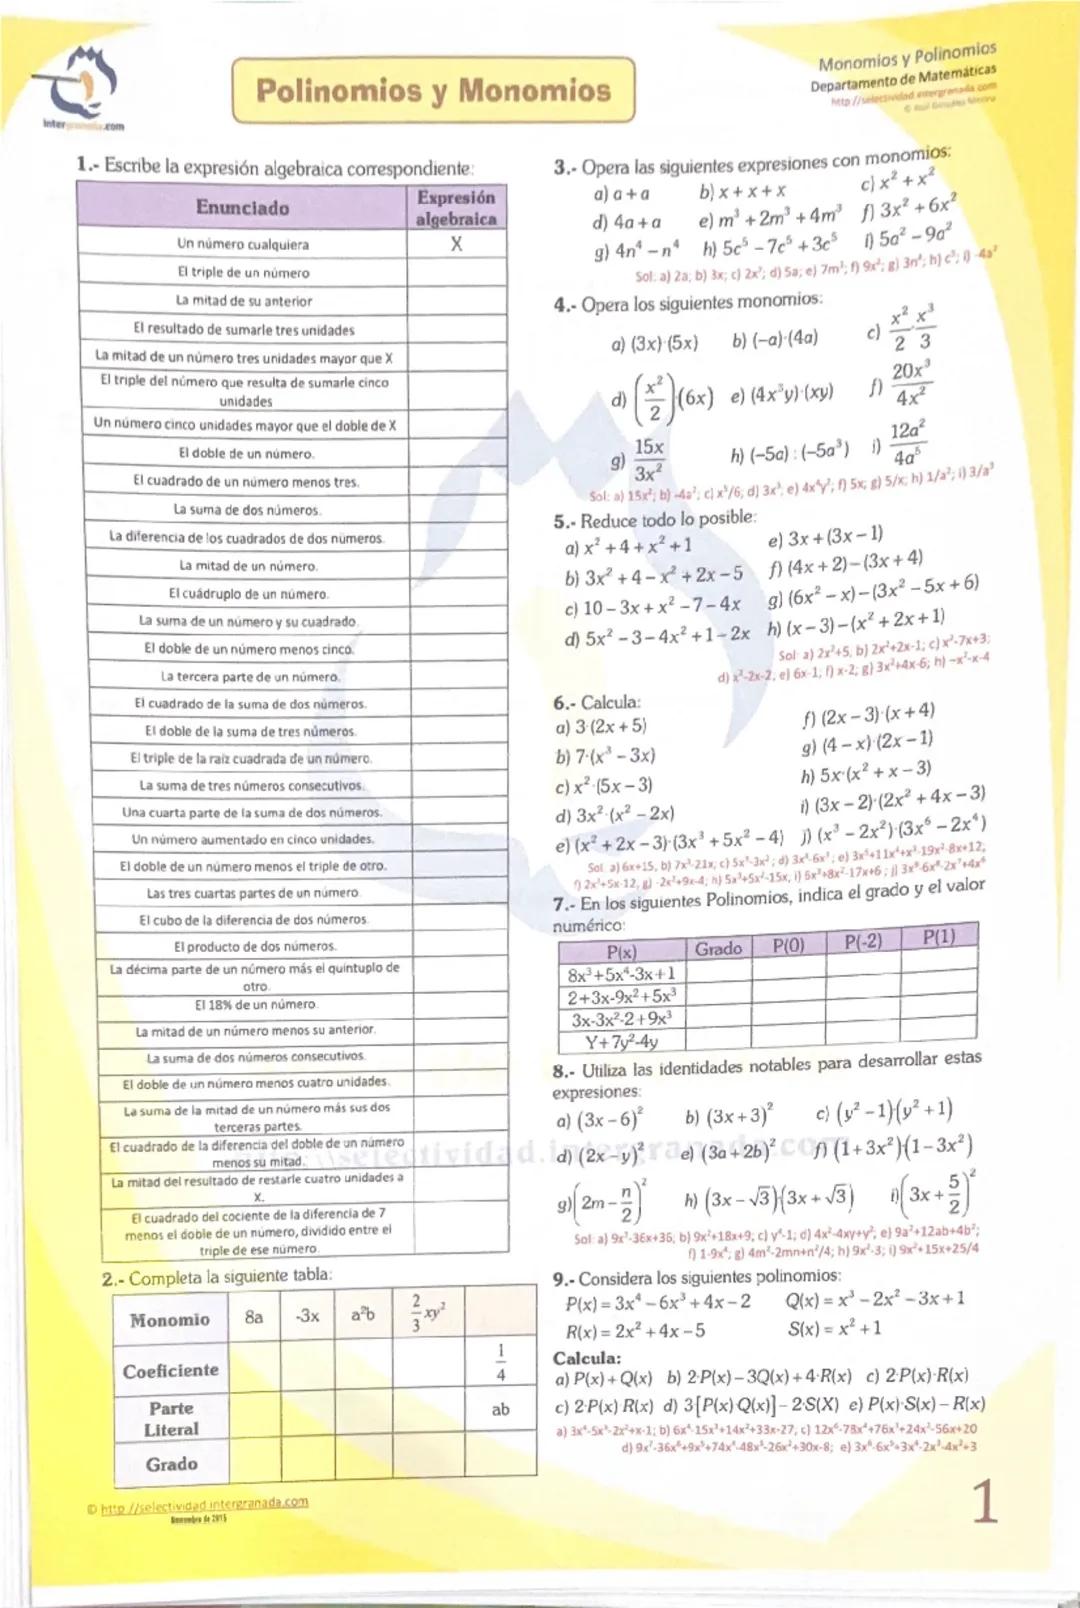 Polinomios y Monomios
Monomios y Polinomios
Departamento de Matemáticas
http://selectividad.intergranada.com
1.- Escribe la expresión algebraica correspondiente:
Enunciado
Expresión algebraica
Un número cualquiera
X
El triple de un número
La mitad de su anterior
El resultado de sumarle tres unidades
La mitad de un número tres unidades mayor que X
El triple del número que resulta de sumarle cinco
unidades
Un número cinco unidades mayor que el doble de X
El doble de un número.
El cuadrado de un número menos tres.
La suma de dos números.
La diferencia de los cuadrados de dos números.
La mitad de un número.
El cuádruplo de un número.
La suma de un número y su cuadrado.
El doble de un número menos cinco.
La tercera parte de un número.
El cuadrado de la suma de dos números.
El doble de la suma de tres números.
El triple de la raíz cuadrada de un número.
La suma de tres números consecutivos.
Una cuarta parte de la suma de dos números.
Un número aumentado en cinco unidades.
El doble de un número menos el triple de otro.
Las tres cuartas partes de un número.
El cubo de la diferencia de dos números.
El producto de dos números.
La décima parte de un número más el quíntuplo de
otro.
El 18% de un número.
La mitad de un número menos su anterior.
La suma de dos números consecutivos.
El doble de un número menos cuatro unidades.
La suma de la mitad de un número más sus dos
terceras partes.
El cuadrado de la diferencia del doble de un número
menos su mitad.
La mitad del resultado de restarle cuatro unidades a
X.
El cuadrado del cociente de la diferencia de 7
menos el doble de un número, dividido entre el
triple de ese número.
2.- Completa la siguiente tabla:
Monomio 8a -3x a²b 2/3 xy²
Coeficiente 1/4
Parte Literal ab
Grado
© http://selectividad.intergranada.com
Noviembre de 2015
3.- Opera las siguientes expresiones con monomios:
a) a + a b) x + x + x c) x² + x²
d) 4a + a e) m³ + 2m³ + 4m³ f) 3x² + 6x²
g) 4n⁴ − n⁴ h) 5c⁵ − 7c⁵ + 3c⁵ i) 5a² − 9a²
Sol: a) 2a; b) 3x; c) 2x²; d) 5a; e) 7m³; f) 9x²; g) 3n⁴; h) c⁵; i) -4a²
4.- Opera los siguientes monomios:
a) (3x)·(5x) b) (−a)·(4a) c) x²/2 · x³/3
d) (x²/2)·(6x) e) (4x³y)·(xy) f) 20x³/4x²
g) 15x/3x² h) (−5a) : (−5a³) i) 12a²/4a⁵
Sol: a) 15x²; b) -4a²; c) x⁵/6; d) 3x³; e) 4x⁴y²; f) 5x; g) 5/x; h) 1/a²; i) 3/a³
5.- Reduce todo lo posible:
a) x² + 4 + x² + 1 e) 3x + (3x − 1)
b) 3x² + 4 − x² + 2x − 5 f) (4x + 2) − (3x + 4)
c) 10 − 3x + x² − 7 − 4x g) (6x² − x) − (3x² − 5x + 6)
d) 5x² − 3 − 4x² + 1 − 2x h) (x − 3) − (x² + 2x + 1)
Sol: a) 2x²+5; b) 2x²+2x-1; c) x²-7x+3;
d) x²-2x-2; e) 6x-1; f) x-2; g) 3x²+4x-6; h) -x²-x-4
6.- Calcula:
a) 3·(2x + 5) f) (2x − 3)·(x + 4)
b) 7·(x³ − 3x) g) (4 − x)·(2x − 1)
c) x²·(5x − 3) h) 5x·(x² + x − 3)
d) 3x²·(x² − 2x) i) (3x − 2)·(2x² + 4x − 3)
e) (x² + 2x − 3)·(3x³ + 5x² − 4) j) (x³ − 2x²)·(3x⁶ − 2x⁴)
Sol: a) 6x+15; b) 7x³-21x; c) 5x³-3x²; d) 3x⁴-6x³; e) 3x⁵+11x⁴+x³-19x²-8x+12;
f) 2x²+5x-12; g) -2x²+9x-4; h) 5x³+5x²-15x; i) 6x³+8x²-17x+6; j) 3x⁹-6x⁸-2x⁷+4x⁶
7.- En los siguientes Polinomios, indica el grado y el valor
numérico:
P(x) Grado P(0) P(-2) P(1)
8x³+5x⁴-3x+1
2+3x-9x²+5x³
3x-3x²-2+9x³
Y+7y²-4y
8.- Utiliza las identidades notables para desarrollar estas
expresiones:
a) (3x − 6)² b) (3x + 3)² c) (y² − 1)·(y² + 1)
d) (2x − y)² e) (3a + 2b)² f) (1 + 3x²)·(1 − 3x²)
g) (2m − n/2)² h) (3x − √3)(3x + √3) i) (3x + 5/2)²
Sol: a) 9x²-36x+36; b) 9x²+18x+9; c) y⁴-1; d) 4x²-4xy+y²; e) 9a²+12ab+4b²;
f) 1-9x⁴; g) 4m²-2mn+n²/4; h) 9x²-3; i) 9x²+15x+25/4
9.- Considera los siguientes polinomios:
P(x) = 3x⁴ − 6x³ + 4x − 2 Q(x) = x³ − 2x² − 3x + 1
R(x) = 2x² + 4x − 5 S(x) = x² + 1
Calcula:
a) P(x) + Q(x) b) 2·P(x) − 3Q(x) + 4·R(x) c) 2·P(x)·R(x)
c) 2·P(x)·R(x) d) 3[P(x)·Q(x)] − 2·S(X) e) P(x)·S(x) − R(x)
a) 3x⁴-5x³-2x²+x-1; b) 6x⁴-15x³+14x²+33x-27; c) 12x⁶-78x⁴+76x³+24x²-56x+20
d) 9x⁷-36x⁶+9x⁵+74x⁴-48x³-26x²+30x-8; e) 3x⁶-6x⁵+3x⁴-2x³-4x²+3
1